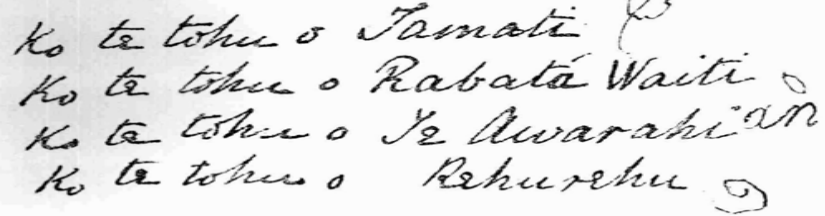 Ko te tohu o Tamati
Ko te tohu o Rabata Waiti
Ko te tohu o Te Awarahi
Ko te tohu o Rehurehu